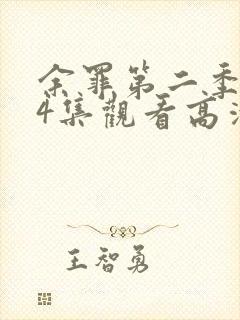 余罪第二季
4集觀看高清
王智勇